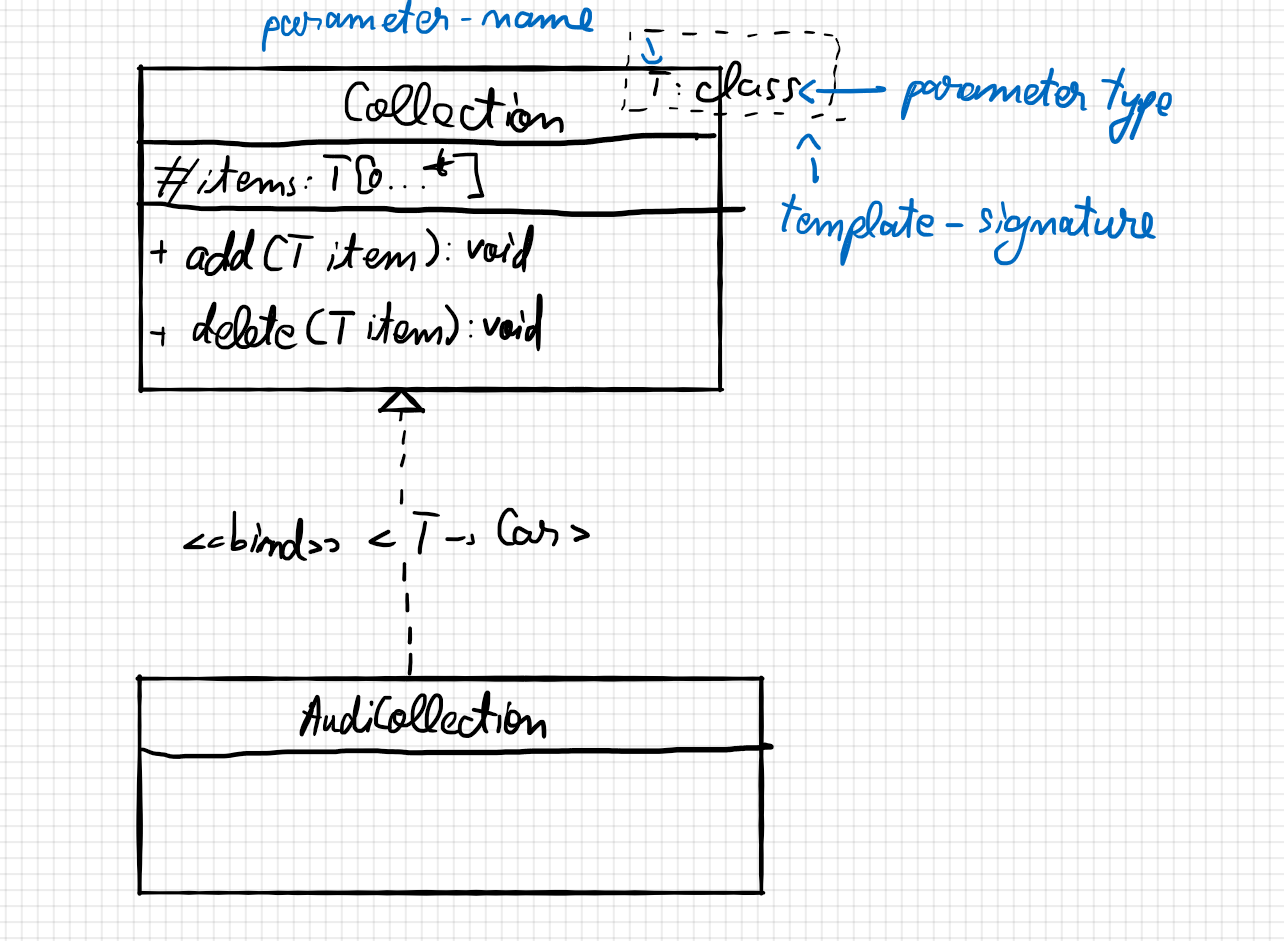 parameter-name
T: class
parameter type
Collection
#items: T[0...*]
template-signature
+ add(T item): void
+ delete(T item): void
<<bind>> < T -> Car >
AudiCollection